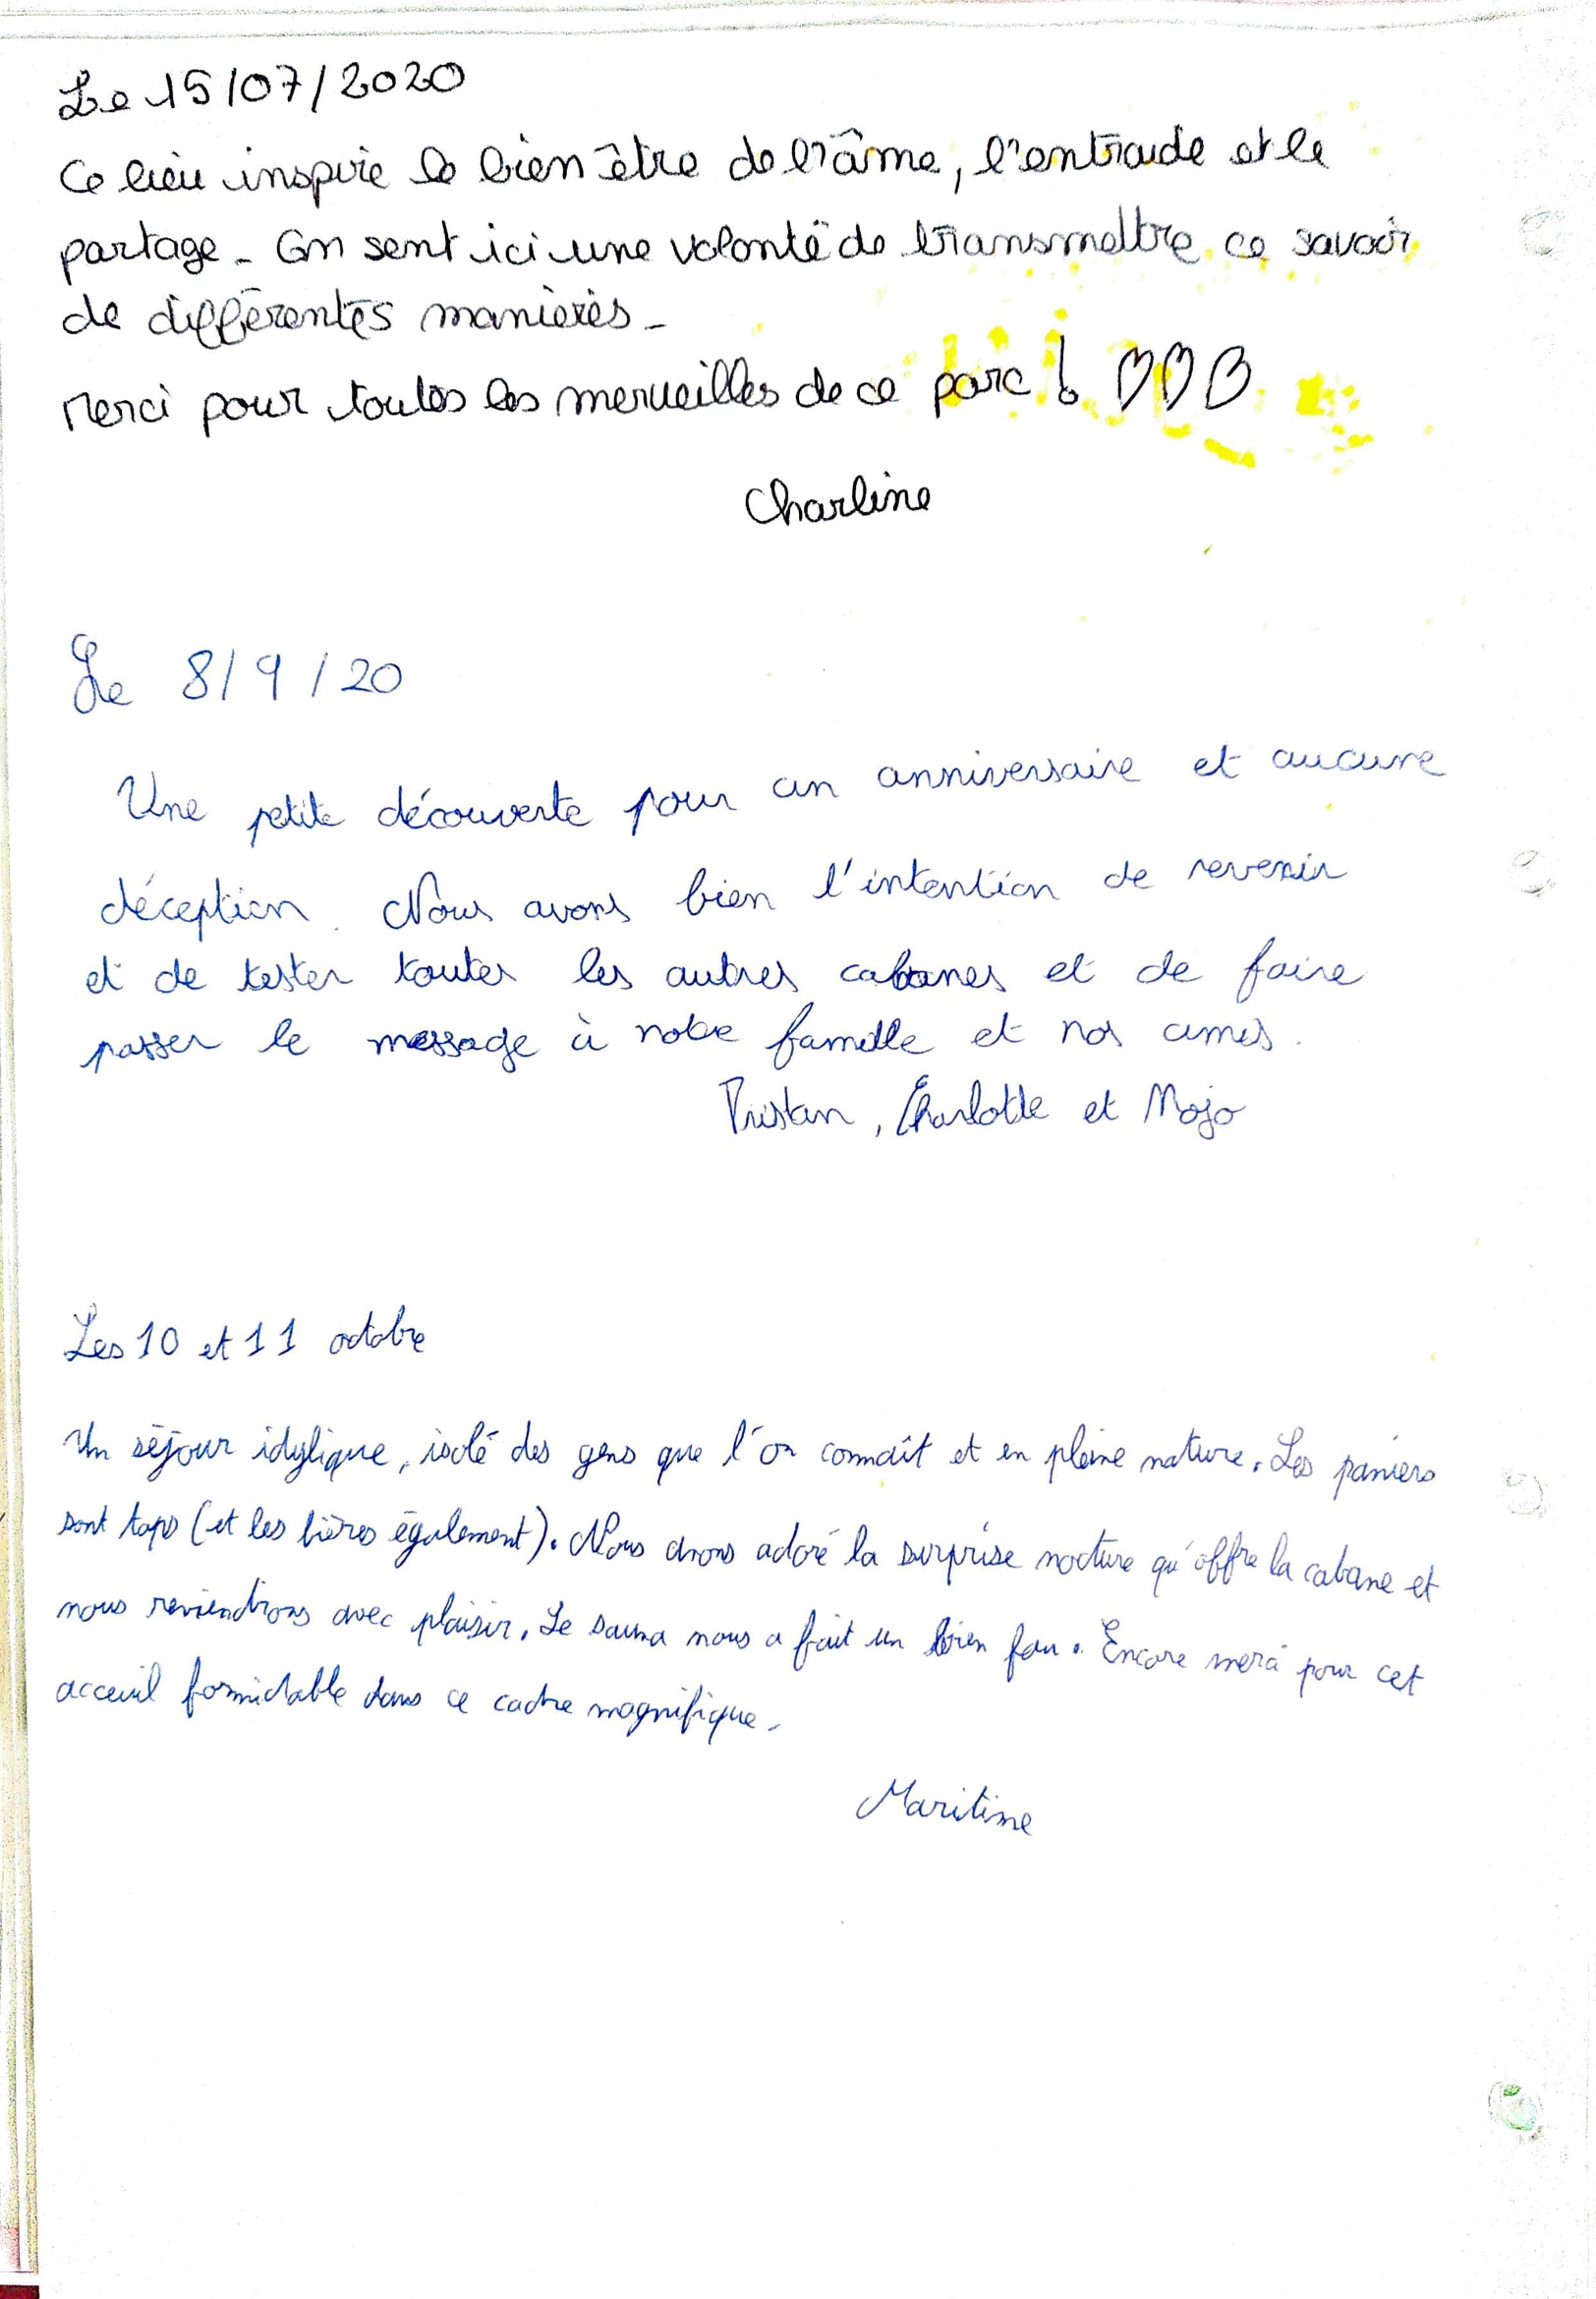 Le 15/07/2020
Ce lieu inspire le bien être de l'âme, l'entraide et le
partage - On sent ici une volonté de transmettre ce savoir
de différentes manières -
Merci pour toutes les merveilles de ce parc ! ♡♡♡
Charline
Le 8/9/20
Une petite découverte pour un anniversaire et aucune
déception. Nous avons bien l'intention de revenir
et de tester toutes les autres cabanes et de faire
passer le message à notre famille et nos amis.
Tristan, Charlotte et Mojo
Les 10 et 11 octobre
Un séjour idylique, isolé des gens que l'on connaît et en pleine nature. Les paniers
sont tops (et les bières également). Nous avons adoré la surprise nocture qu'offre la cabane et
nous reviendrons avec plaisir. Le sauna nous a fait un bien fou. Encore merci pour cet
acceuil formidable dans ce cadre magnifique.
Maritime